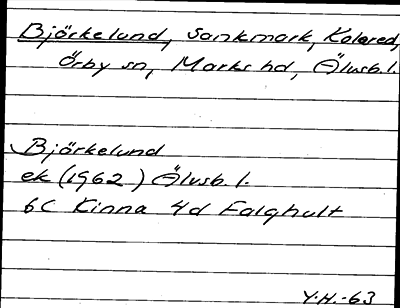 Björkelund, Sankmark, Kolared,
Örby sn, Marks hd, Älvsb. l.
Björkelund
ek (1962) Älvsb. l.
6c Kinna 4d Falghult
Y.H.-63